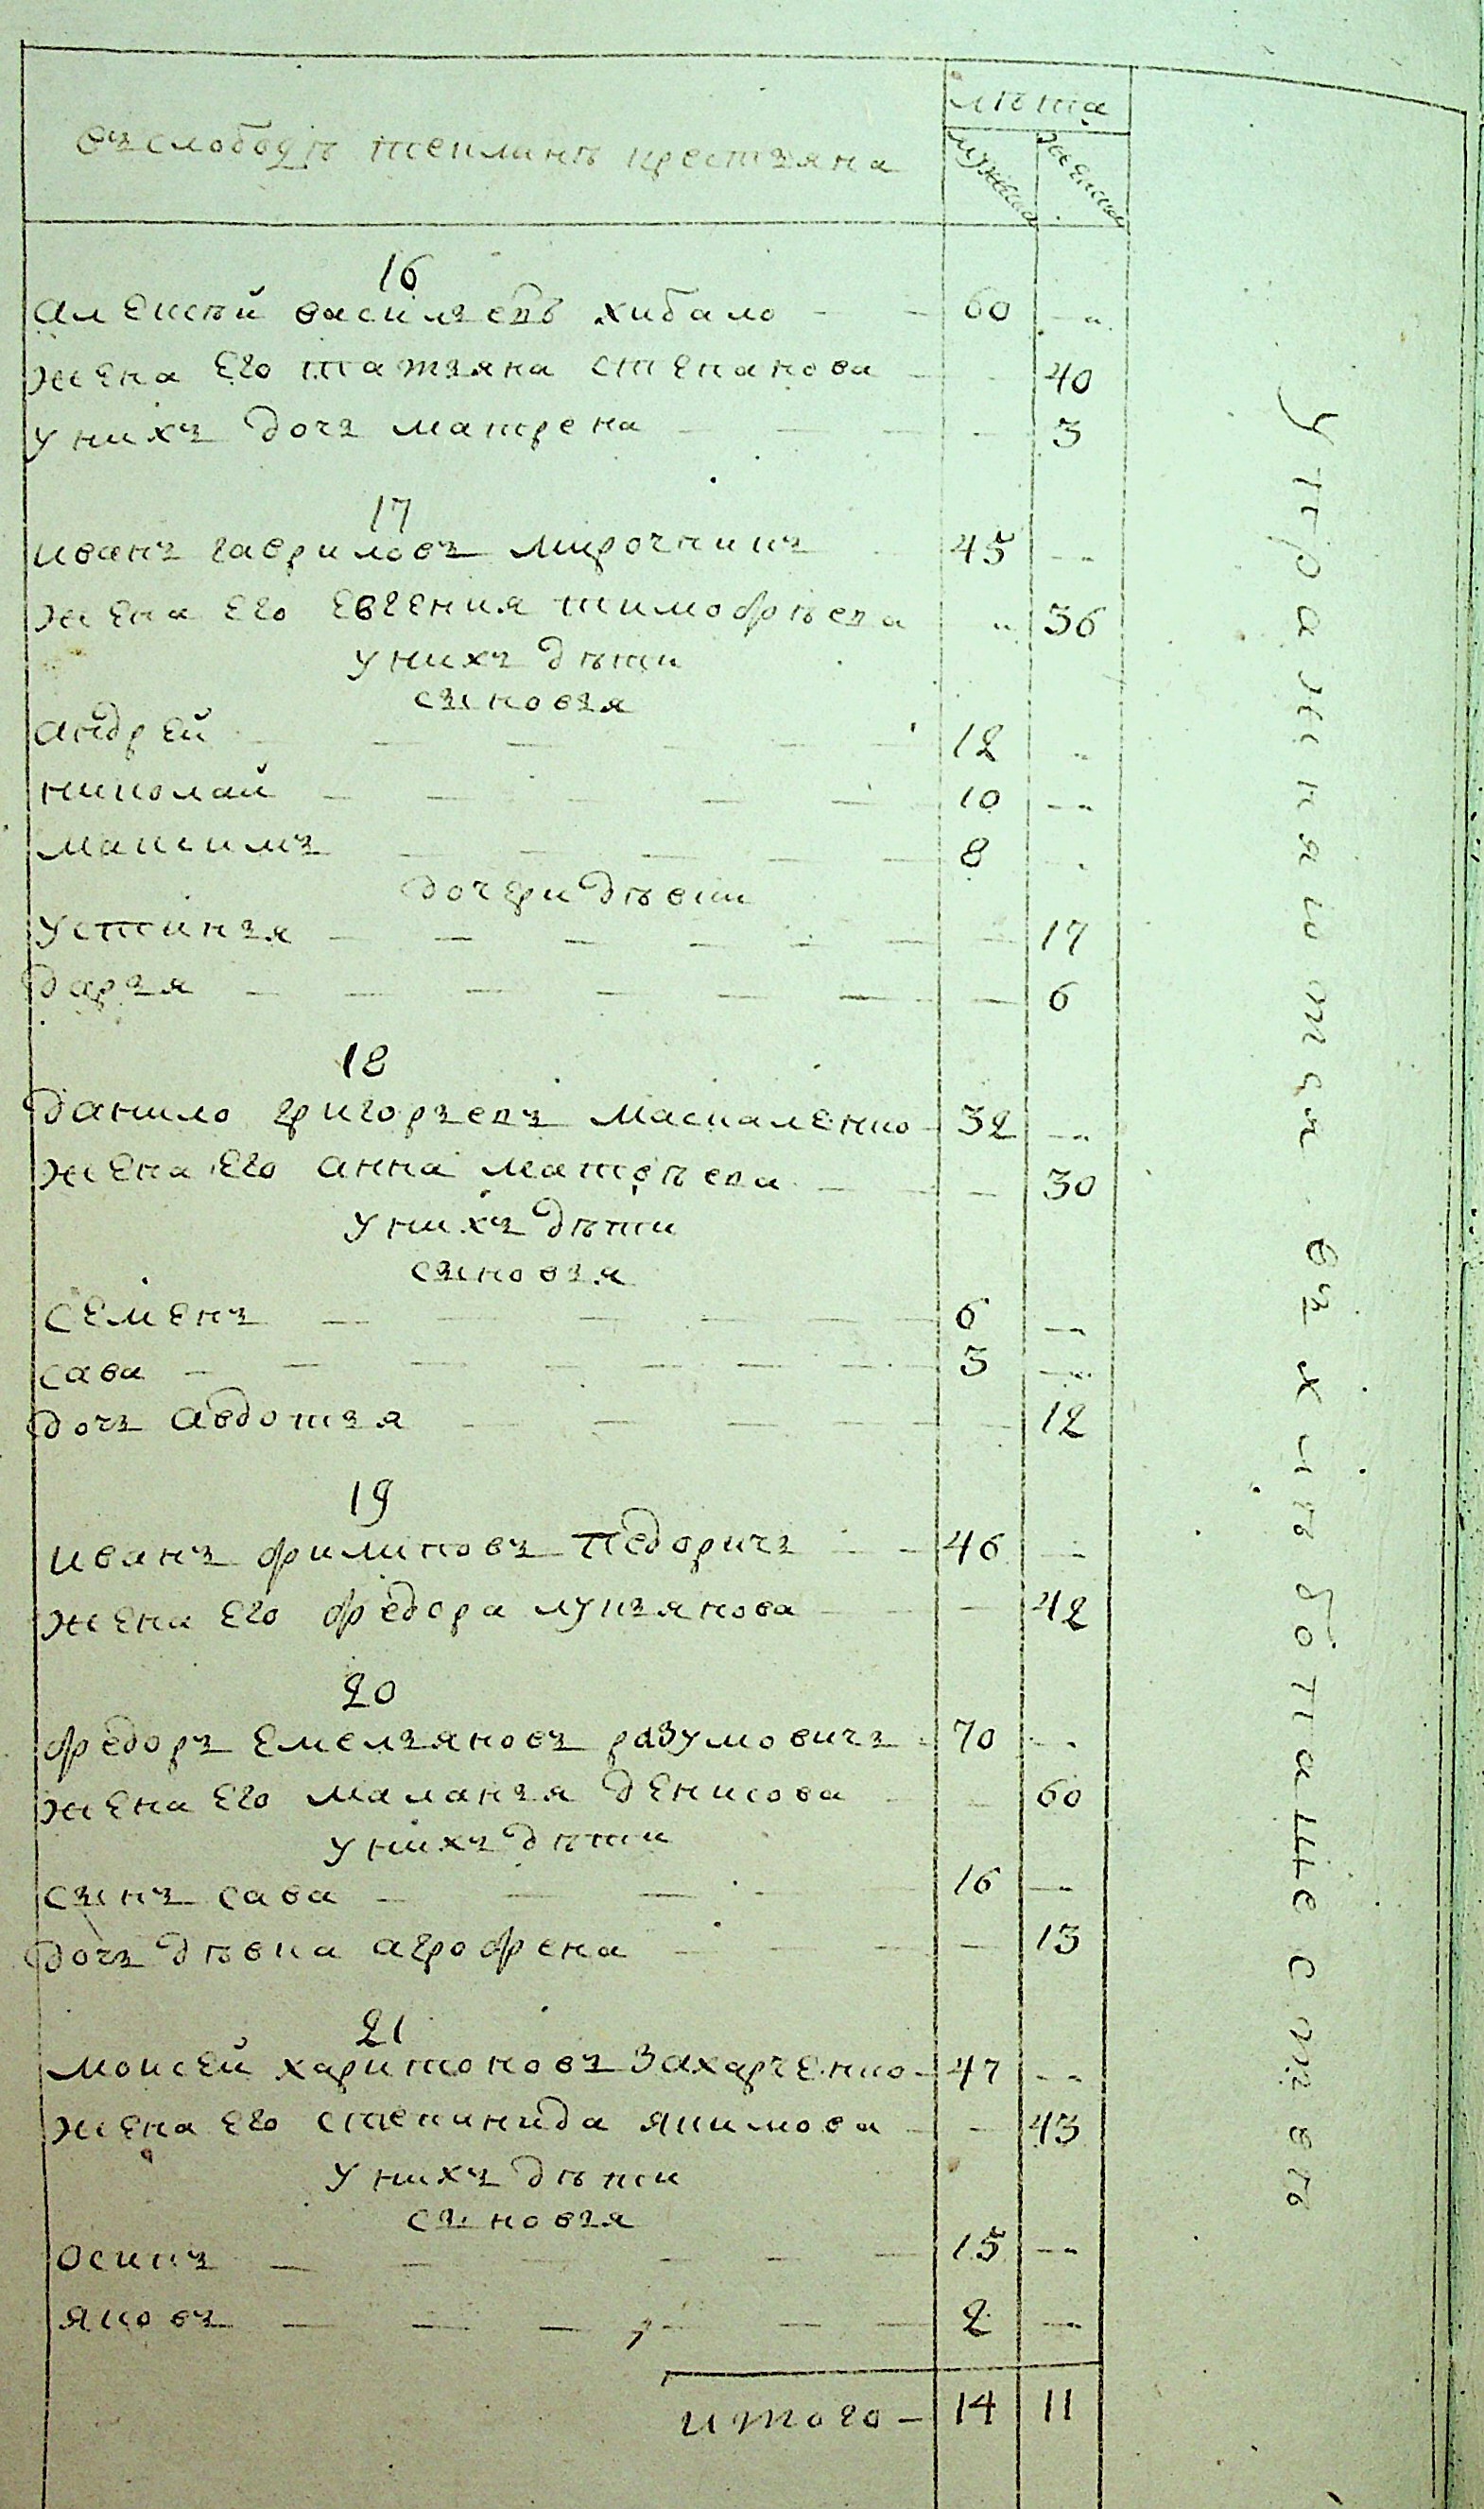 лѣта
въ слободѣ теплинѣ крестьяна
мужеска женска
16
алексѣй васильевъ хибало 60
жена его татьяна степанова 40
у нихъ дочь матрена 3
17
иванъ гавриловъ мирочникъ 45
жена его евгения тимофѣева 36
у нихъ дѣти
сыновья
андрей 12
николай 10
максимъ 8
дочери дѣвки
устинья 17
дарья 6
18
данило григорьевъ маскаленко 32
жена его анна матвѣева 30
у нихъ дѣти
сыновья
семенъ 6
сава 3
дочь авдотья 12
19
иванъ филиповъ педоричъ 46
жена его федора лукьянова 42
20
федоръ емельяновъ разумовичъ 70
жена его маланья денисова 60
у нихъ дѣти
сынъ сава 16
дочь дѣвка агрофена 13
21
моисей харитоновъ захарченко 47
жена его степанида якимова 43
у нихъ дѣти
сыновья
осипъ 15
яковъ 2
итого 14 11
упражняютца въ хлѣбопашествѣ